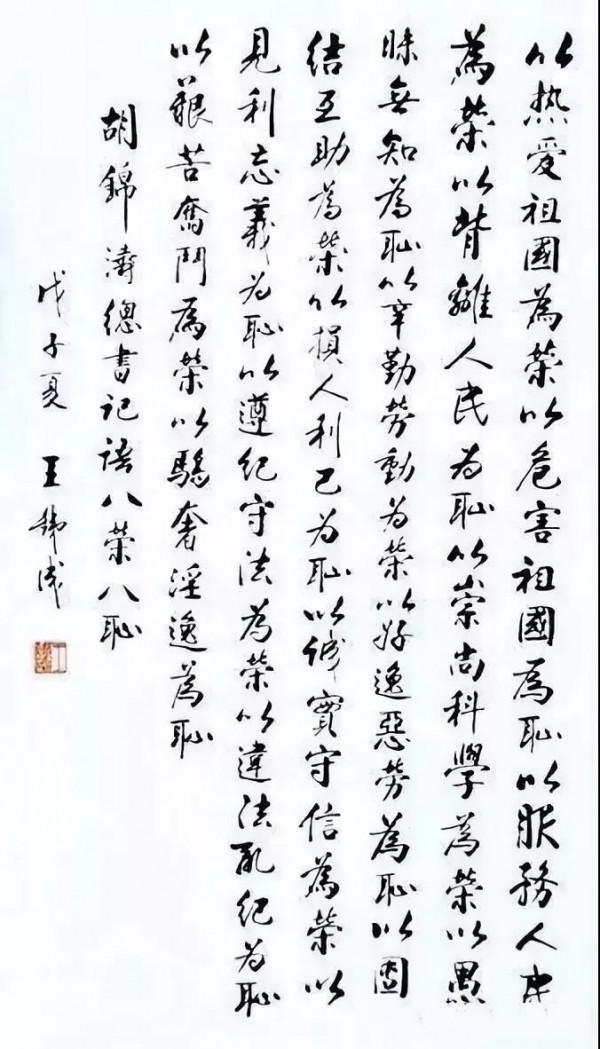 以热爱祖國為榮以危害祖國為恥以服務人民
為榮以背離人民为恥以崇尚科學為榮以愚
昧無知為恥以辛勤劳動为榮以好逸惡劳為恥以團
结互助為榮以損人利己为恥以诚實守信為榮以
見利忘義为恥以遵纪守法為榮以違法亂纪为恥
以艱苦奮鬥為榮以驕奢淫逸為恥
胡錦濤總書记语八榮八恥
戊子夏 王 成